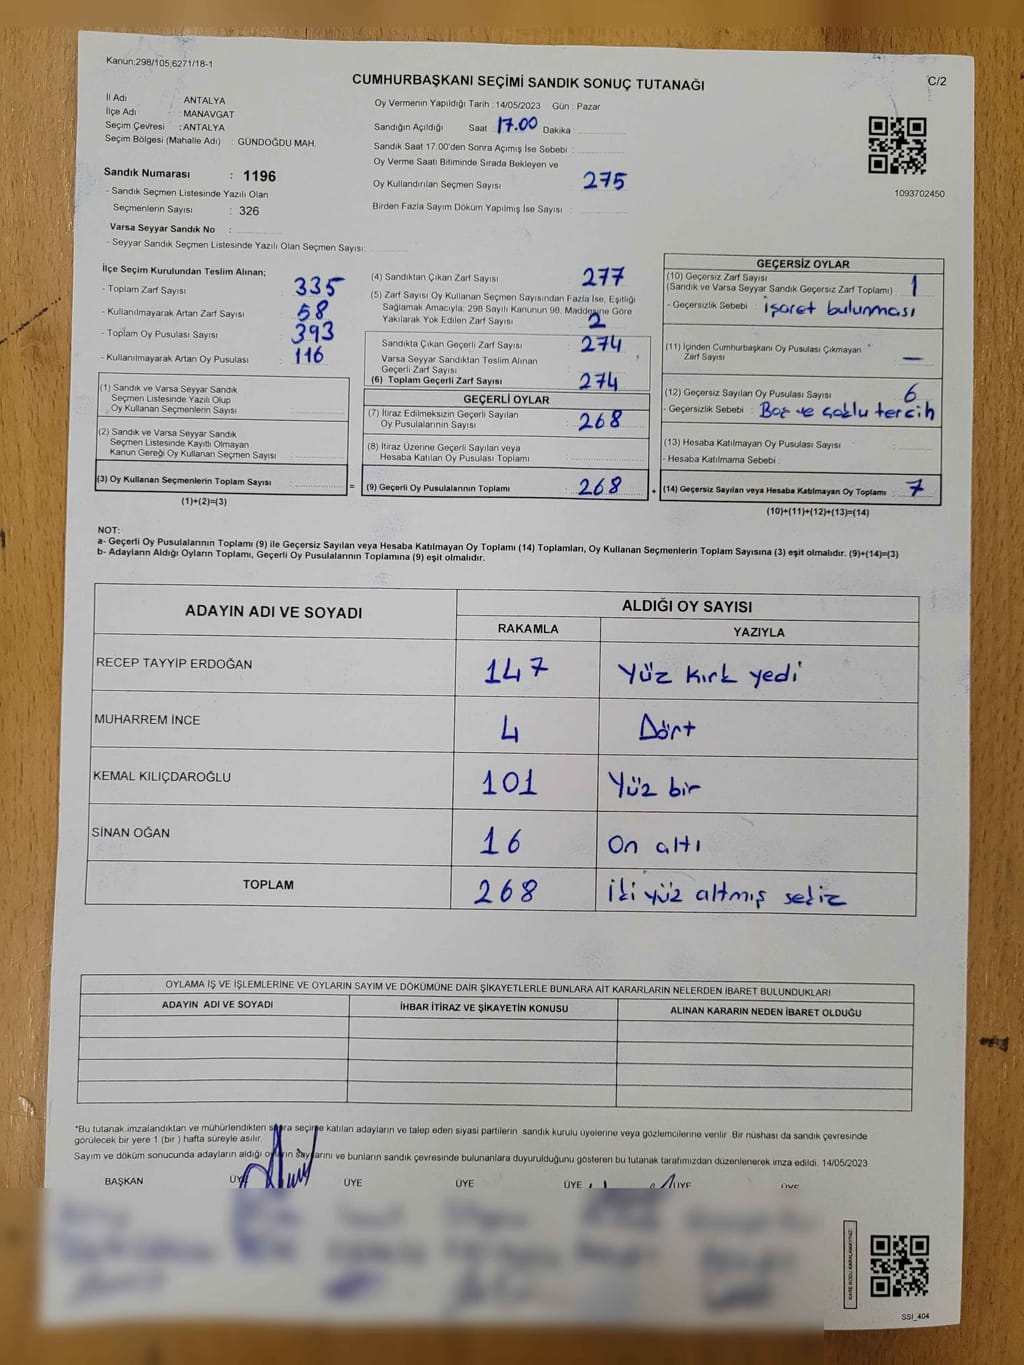 Kanun;298/105;6271/18-1
C/2
CUMHURBAŞKANI SEÇİMİ SANDIK SONUÇ TUTANAĞI
İl Adı ANTALYA
İlçe Adı MANAVGAT
Seçim Çevresi : ANTALYA
Seçim Bölgesi (Mahalle Adı) : GÜNDOĞDU MAH.
Sandık Numarası : 1196
- Sandık Seçmen Listesinde Yazılı Olan
Seçmenlerin Sayısı : 326
Varsa Seyyar Sandık No :
- Seyyar Sandık Seçmen Listesinde Yazılı Olan Seçmen Sayısı:
Oy Vermenin Yapıldığı Tarih : 14/05/2023 Gün : Pazar
Sandığın Açıldığı Saat 17.00 Dakika :
Sandık Saat 17.00'den Sonra Açımış İse Sebebi :
Oy Verme Saati Bitiminde Sırada Bekleyen ve
Oy Kullandırılan Seçmen Sayısı : 275
Birden Fazla Sayım Döküm Yapılmış İse Sayısı :
1093702450
İlçe Seçim Kurulundan Teslim Alınan;
- Toplam Zarf Sayısı : 335
- Kullanılmayarak Artan Zarf Sayısı : 58
- Toplam Oy Pusulası Sayısı : 393
- Kullanılmayarak Artan Oy Pusulası : 116
(1) Sandık ve Varsa Seyyar Sandık
Seçmen Listesinde Yazılı Olup
Oy Kullanan Seçmenlerin Sayısı :
(2) Sandık ve Varsa Seyyar Sandık
Seçmen Listesinde Kayıtlı Olmayan
Kanun Gereği Oy Kullanan Seçmen Sayısı :
(3) Oy Kullanan Seçmenlerin Toplam Sayısı :
(1)+(2)=(3)
(4) Sandıktan Çıkan Zarf Sayısı : 277
(5) Zarf Sayısı Oy Kullanan Seçmen Sayısından Fazla İse, Eşitliği
Sağlamak Amacıyla; 298 Sayılı Kanunun 98. Maddesine Göre
Yakılarak Yok Edilen Zarf Sayısı : 2
Sandıkta Çıkan Geçerli Zarf Sayısı : 274
Varsa Seyyar Sandıktan Teslim Alınan
Geçerli Zarf Sayısı :
(6) Toplam Geçerli Zarf Sayısı : 274
GEÇERLİ OYLAR
(7) İtiraz Edilmeksizin Geçerli Sayılan
Oy Pusulalarının Sayısı : 268
(8) İtiraz Üzerine Geçerli Sayılan veya
Hesaba Katılan Oy Pusulası Toplamı :
= (9) Geçerli Oy Pusulalarının Toplamı : 268 +
GEÇERSİZ OYLAR
(10) Geçersiz Zarf Sayısı
(Sandık ve Varsa Seyyar Sandık Geçersiz Zarf Toplamı) : 1
- Geçersizlik Sebebi : İşaret bulunması
(11) İçinden Cumhurbaşkanı Oy Pusulası Çıkmayan
Zarf Sayısı —
(12) Geçersiz Sayılan Oy Pusulası Sayısı : 6
- Geçersizlik Sebebi : Boş ve çoklu tercih
(13) Hesaba Katılmayan Oy Pusulası Sayısı :
- Hesaba Katılmama Sebebi :
(14) Geçersiz Sayılan veya Hesaba Katılmayan Oy Toplamı : 7
(10)+(11)+(12)+(13)=(14)
NOT:
a- Geçerli Oy Pusulalarının Toplamı (9) ile Geçersiz Sayılan veya Hesaba Katılmayan Oy Toplamı (14) Toplamları, Oy Kullanan Seçmenlerin Toplam Sayısına (3) eşit olmalıdır. (9)+(14)=(3)
b- Adayların Aldığı Oyların Toplamı, Geçerli Oy Pusulalarının Toplamına (9) eşit olmalıdır.
ADAYIN ADI VE SOYADI ALDIĞI OY SAYISI
RAKAMLA YAZIYLA
RECEP TAYYİP ERDOĞAN 147 Yüz kırk yedi
MUHARREM İNCE 4 Dört
KEMAL KILIÇDAROĞLU 101 Yüz bir
SİNAN OĞAN 16 On altı
TOPLAM 268 İki yüz altmış sekiz
OYLAMA İŞ VE İŞLEMLERİNE VE OYLARIN SAYIM VE DÖKÜMÜNE DAİR ŞİKAYETLERLE BUNLARA AİT KARARLARIN NELERDEN İBARET BULUNDUKLARI
ADAYIN ADI VE SOYADI İHBAR İTİRAZ VE ŞİKAYETİN KONUSU ALINAN KARARIN NEDEN İBARET OLDUĞU
*Bu tutanak imzalandıktan ve mühürlendikten sonra seçime katılan adayların ve talep eden siyasi partilerin sandık kurulu üyelerine veya gözlemcilerine verilir. Bir nüshası da sandık çevresinde
görülecek bir yere 1 (bir ) hafta süreyle asılır.
Sayım ve döküm sonucunda adayların aldığı oyların sayılarını ve bunların sandık çevresinde bulunanlara duyurulduğunu gösteren bu tutanak tarafımızdan düzenlenerek imza edildi. 14/05/2023
BAŞKAN ÜYE ÜYE ÜYE ÜYE ÜYE ÜYE
SSI_404